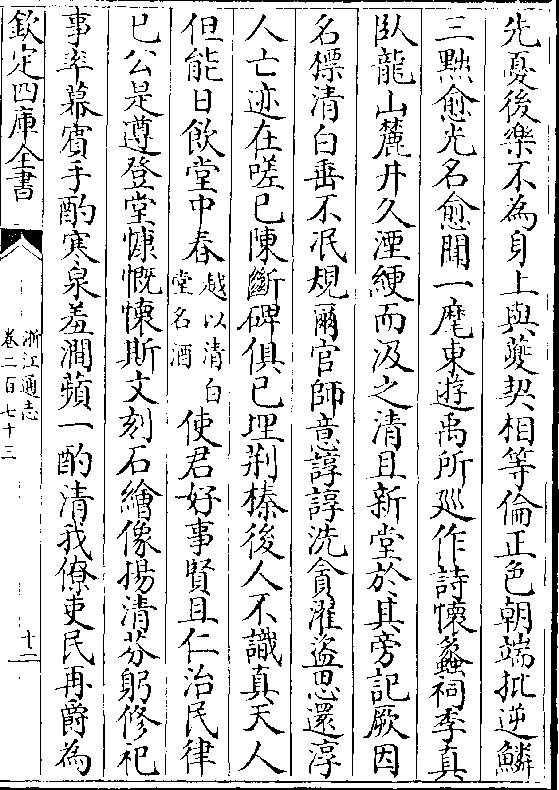 先憂後樂不為身上與夔契相等倫正色朝端批逆鱗
三黜愈光名愈聞一麾東遊禹所廵作詩懷蠡祠季真
臥龍山麓井久湮綆而汲之清且新堂於其旁記厥因
名標清白垂不泯規爾官師意諄諄洗貪濯盜思還淳
人亡迹在嗟已陳斷碑俱已埋荆榛後人不識真天人
但能日飲堂中春越以清白堂名酒使君好事賢且仁治民律
已公是遵登堂慷慨懷斯文刻石繪像揚清芬躬修祀
事率幕賔手酌寒泉羞澗蘋一酌清我僚吏民再爵為
欽定四庫全書
浙江通志
卷二百七十三
十二